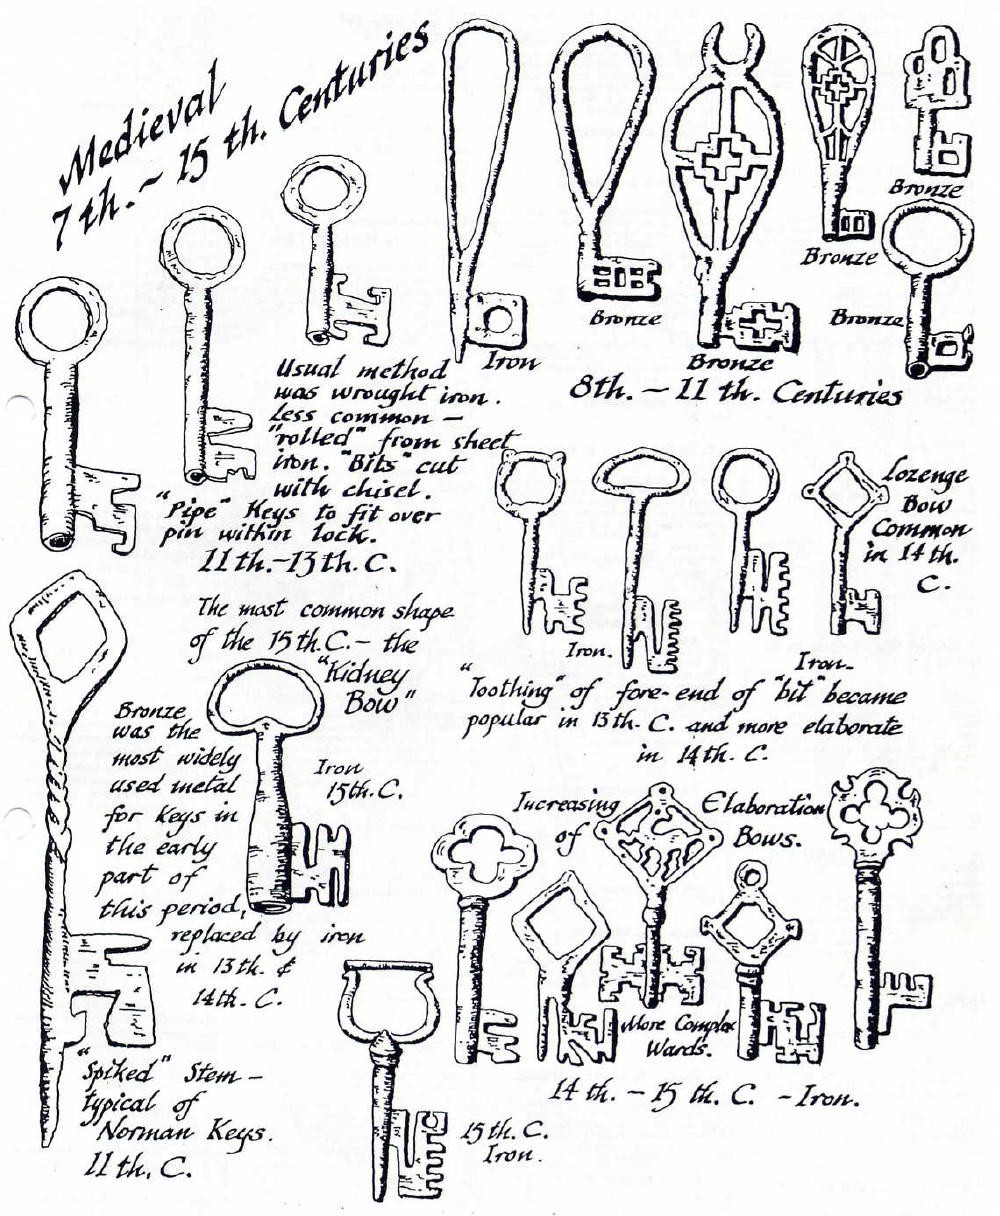 Medieval
7th. – 15 th. Centuries
Iron
Bronze
Bronze
Bronze
Bronze
Bronze
8th. – 11 th. Centuries
Usual method
was wrought iron.
Less common –
"rolled" from sheet
iron. "Bits" cut
with chisel.
"Pipe" Keys to fit over
pin within lock.
11th.–13th. C.
Lozenge
Bow
Common
in 14 th.
C.
Iron.
Iron.
"Toothing" of fore-end of "bit" became
popular in 13th. C. and more elaborate
in 14th. C.
The most common shape
of the 15th.C. – the
"Kidney
Bow"
Iron
15th. C.
Bronze
was the
most widely
used metal
for keys in
the early
part of
this period,
replaced by iron
in 13th. &
14th. C.
"Spiked" Stem –
typical of
Norman Keys.
11 th. C.
Increasing Elaboration
of Bows.
More Complex
Wards.
14 th. – 15 th. C. – Iron.
15 th. C.
Iron.